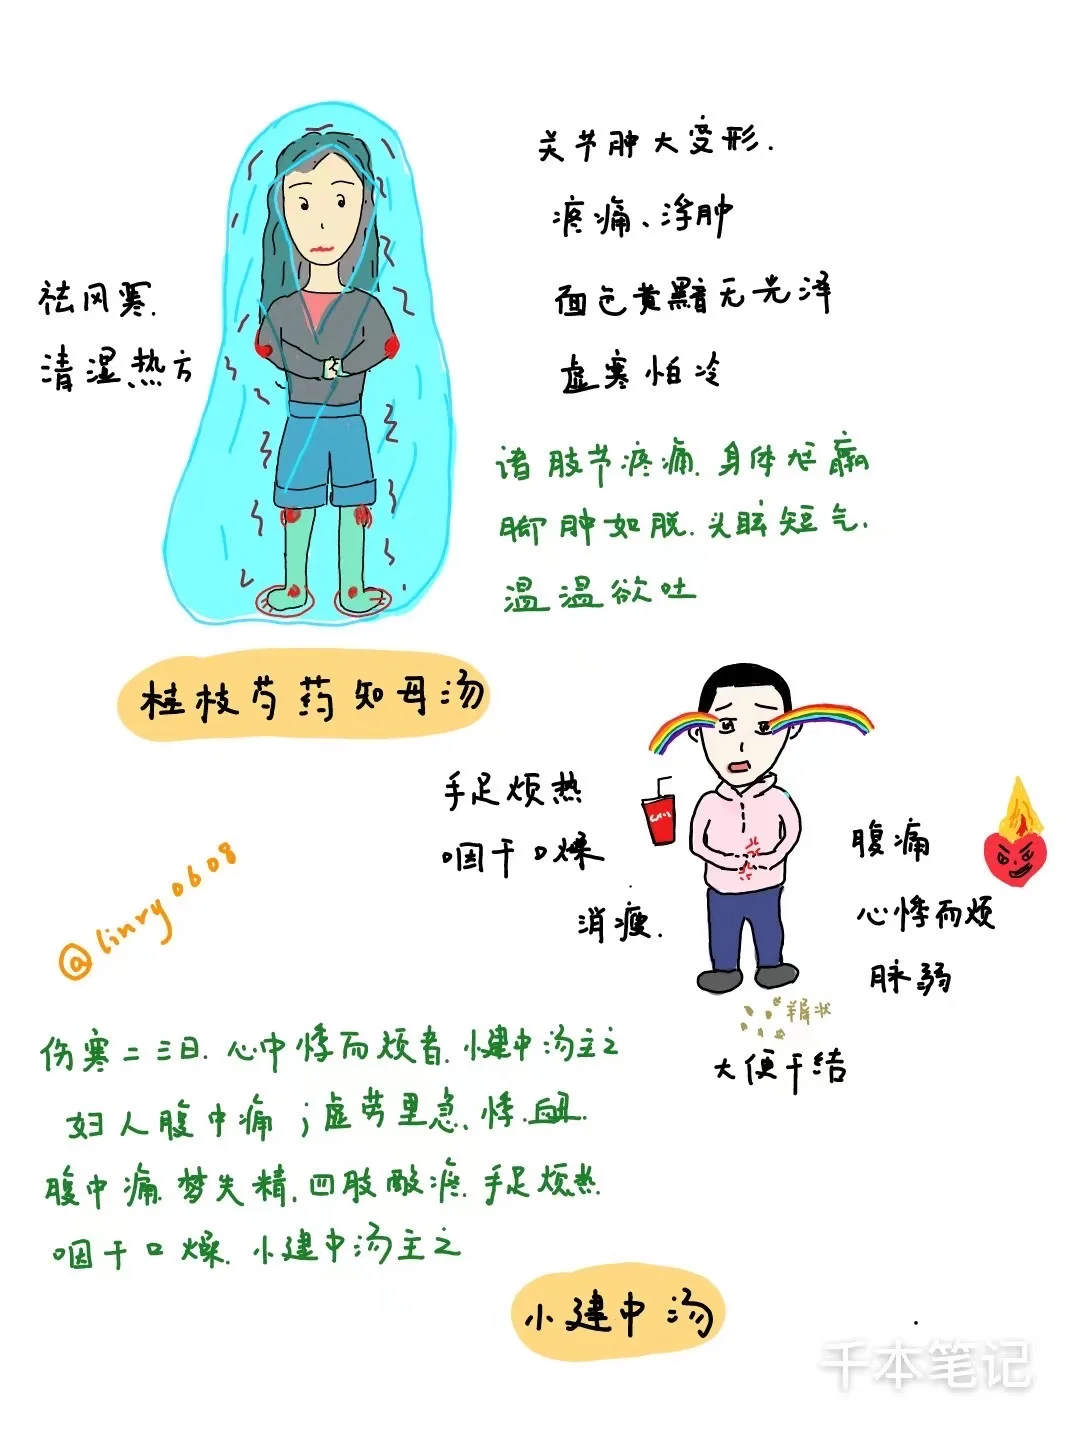 关节肿大变形.
疼痛、浮肿
祛风寒.
清湿热方
面色黄黯无光泽
虚寒怕冷
诸肢节疼痛.身体尪羸
脚肿如脱.头眩短气.
温温欲吐
桂枝芍药知母汤
手足烦热
咽干口燥
消瘦.
腹痛
心悸而烦
脉弱
羊屎状
大便干结
@linry0608
伤寒二三日.心中悸而烦者.小建中汤主之
妇人腹中痛;虚劳里急、悸.衄.
腹中痛.梦失精,四肢酸疼.手足烦热.
咽干口燥.小建中汤主之
小建中汤
千本笔记